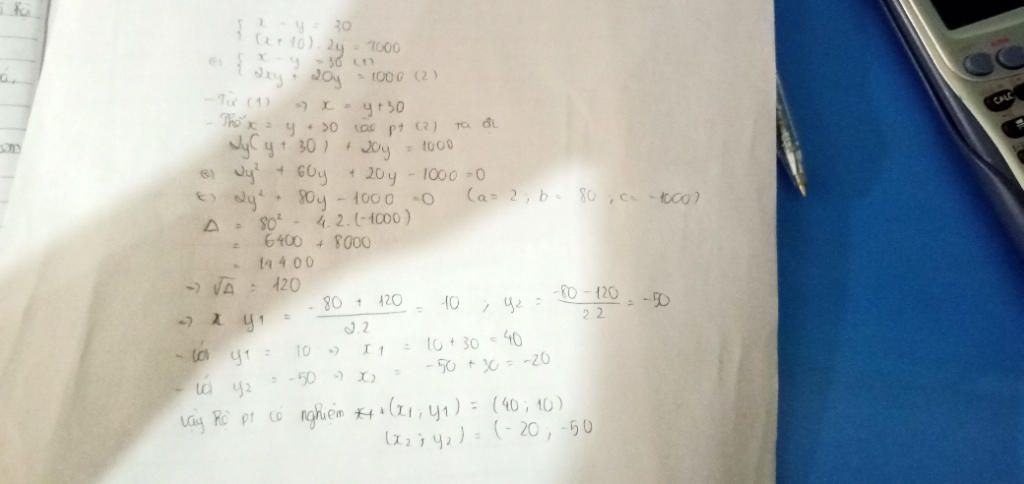 { x - y = 30
(x + 10) . 2y = 1000
<=> { x - y = 30 (1)
2xy + 20y = 1000 (2)
- Từ (1) => x = y + 30
- Thế x = y + 30 vào pt (2) ta đc
2y(y + 30) + 20y = 1000
<=> 2y² + 60y + 20y - 1000 = 0
<=> 2y² + 80y - 1000 = 0 (a = 2 ; b = 80 , c = -1000)
Δ = 80² - 4.2.(-1000)
= 6400 + 8000
= 14400
=> √Δ = 120
=> y1 = (-80 + 120)/2.2 = 10 ; y2 = (-80 - 120)/2.2 = -50
- Với y1 = 10 => x1 = 10 + 30 = 40
- Với y2 = -50 => x2 = -50 + 30 = -20
Vậy hệ pt có nghiệm (x1 ; y1) = (40 ; 10)
(x2 ; y2) = (-20 ; -50
CALC